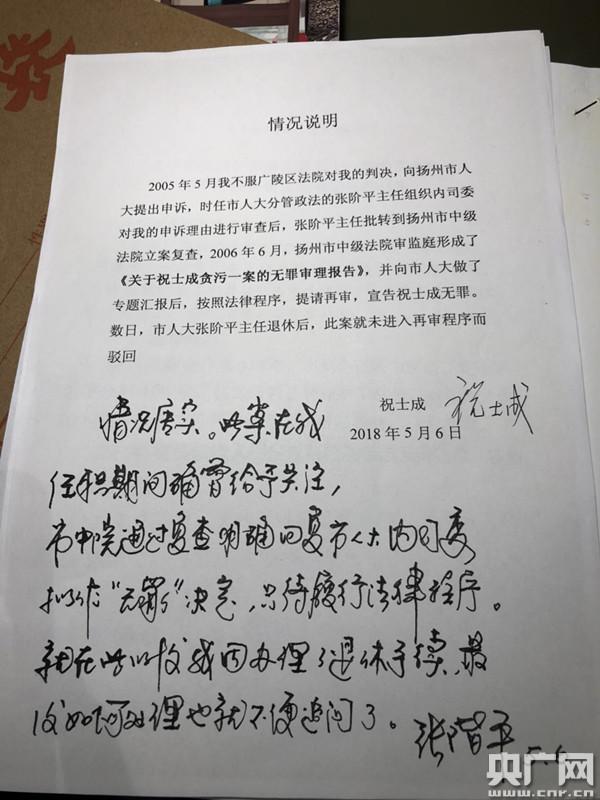 情况说明
2005年5月我不服广陵区法院对我的判决，向扬州市人
大提出申诉，时任市人大分管政法的张阶平主任组织内司委
对我的申诉理由进行审查后，张阶平主任批转到扬州市中级
法院立案复查，2006年6月，扬州市中级法院审监庭形成了
《关于祝士成贪污一案的无罪审理报告》，并向市人大做了
专题汇报后，按照法律程序，提请再审，宣告祝士成无罪。
数日，市人大张阶平主任退休后，此案就未进入再审程序而
驳回
祝士成 祝士成
2018年5月6日
情况属实。此案在我
任职期间确曾给予关注，
市中院通过复查明确回复市人大内司委
拟作“无罪”决定，只待履行法律程序。
就在此以后我因办理了退休手续，最
后如何处理也就不便追问了。
张阶平
5.6
央广网
www.cnr.cn